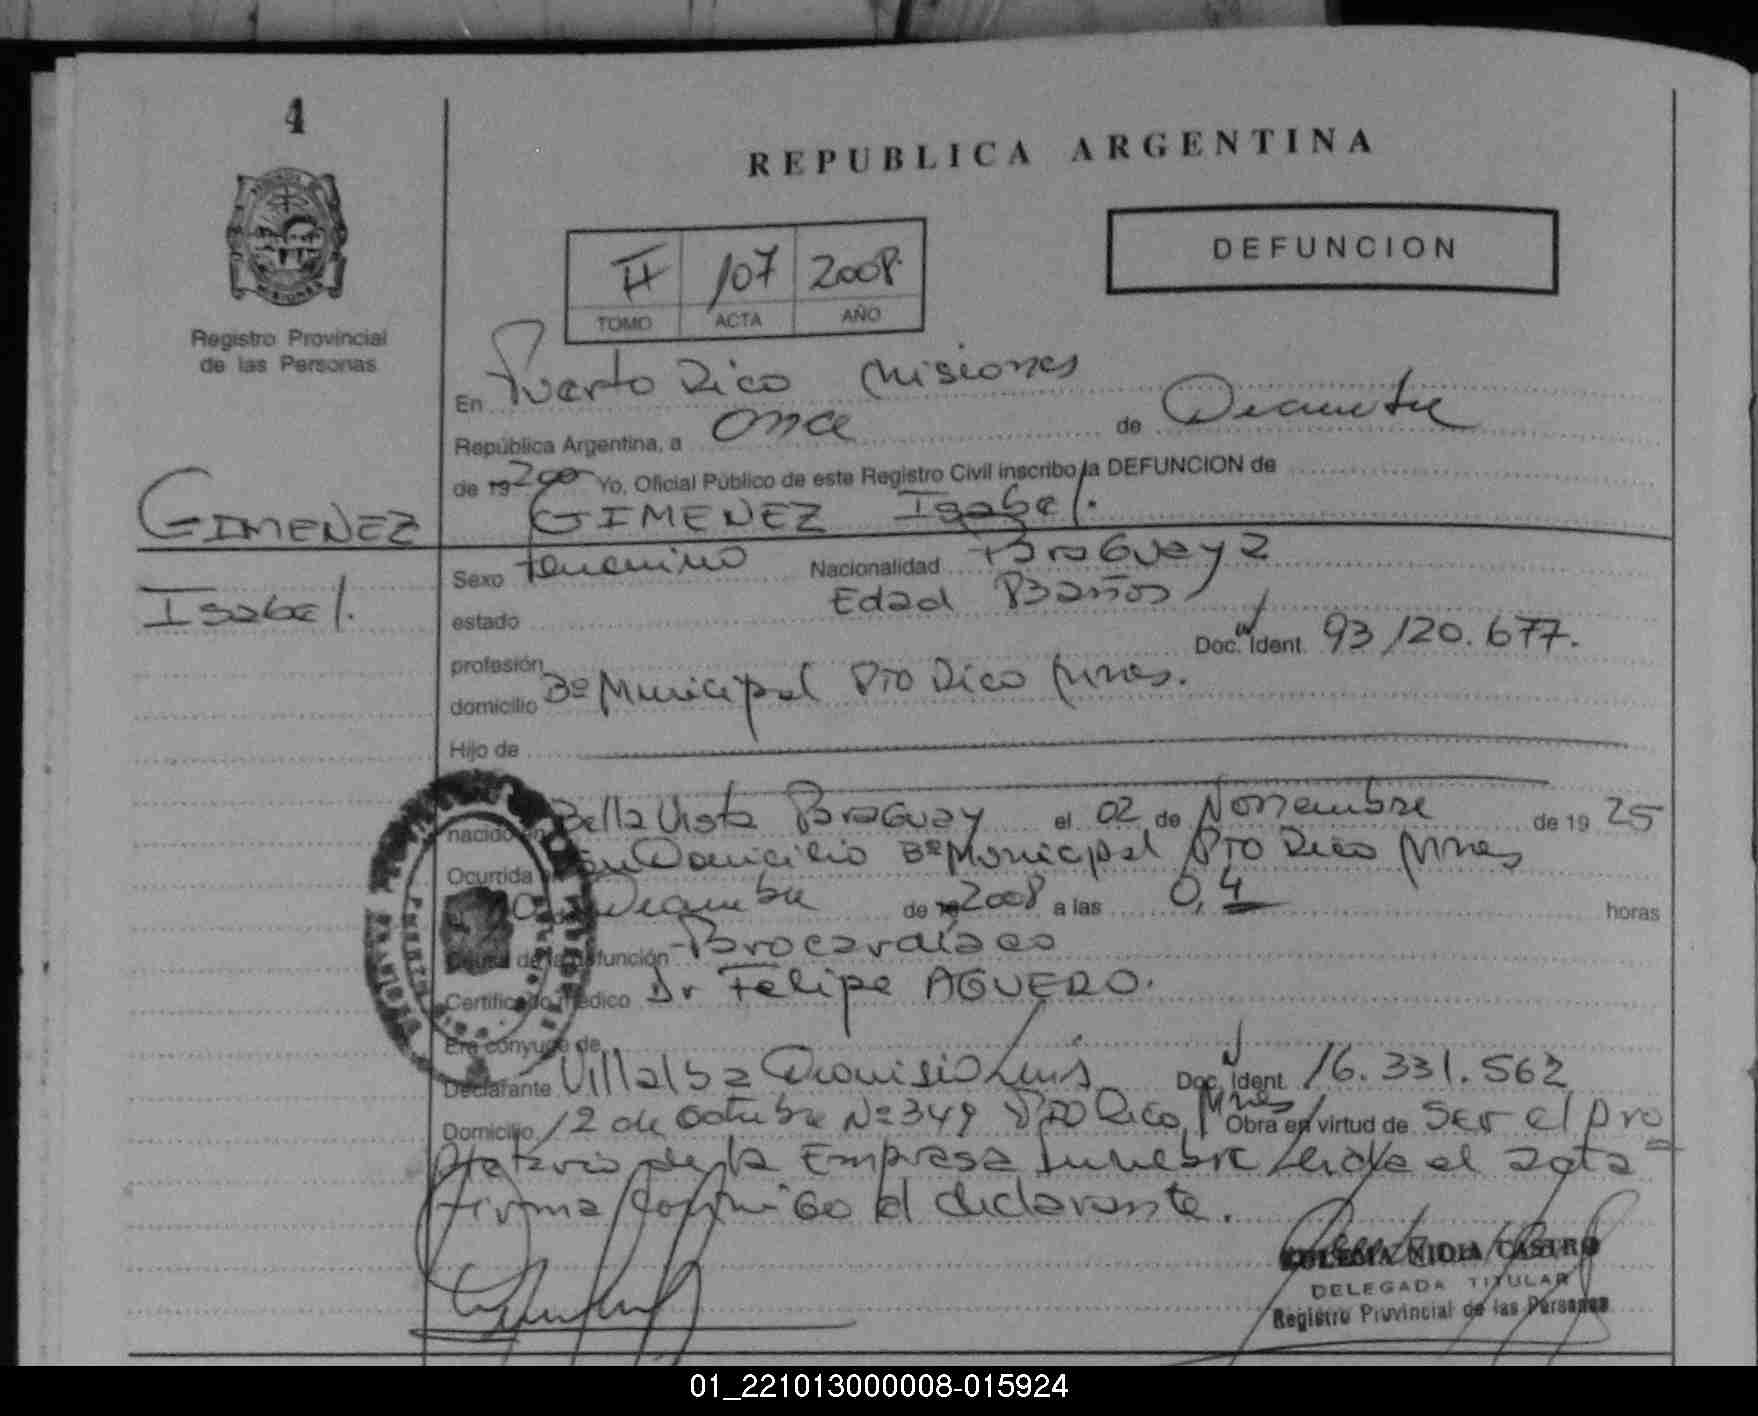 4
REPUBLICA ARGENTINA
DEFUNCION
II 107 2008
TOMO ACTA AÑO
Registro Provincial
de las Personas
En Puerto Rico Misiones
República Argentina, a once de Diciembre
de 19 Yo, Oficial Público de este Registro Civil inscribo la DEFUNCION de
GIMENEZ Isabel.
GIMENEZ
Isabel.
Sexo femenino Nacionalidad Paraguaya
estado Edad años
profesión Doc. Ident. 93/120.677.
domicilio Bº Municipal Pto Rico Mnes.
Hijo de
nacido en Bella Vista Paraguay el 02 de Noviembre de 19 25
Ocurrida en su Domicilio Bº Municipal Pto Rico Mnes
Diciembre de 2008 a las 0,4 horas
Causa de la defunción Parocardíaco
Certificado médico Dr Felipe AGUERO.
Era cónyuge de
Declarante Villalba Dionisio Luis Doc. Ident. 16.331.562
Domicilio 12 de Octubre Nº 349 Pto Rico Mnes Obra en virtud de ser el pro
pietario de la Empresa funebre leida el acta
firma conmigo el declarante.
NIDIA CASTRO
DELEGADA TITULAR
Registro Provincial de las Personas
01_221013000008-015924